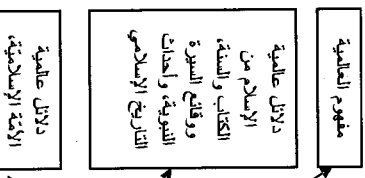 مفهوم العالمية
دلائل عالمية
الإسلام من
الكتاب والسنة،
ووقائع السيرة
النبوية، وأحداث
التاريخ الإسلامي
دلائل عالمية
الأمة الإسلامية،